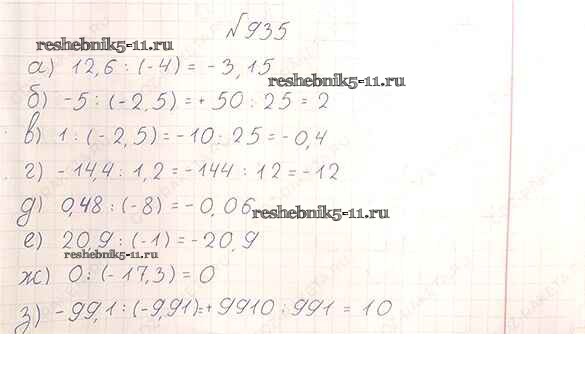 №935
reshebnik5-11.ru
а) 12,6 : (-4) = -3,15
reshebnik5-11.ru
б) -5 : (-2,5) = + 50 : 25 = 2
в) 1 : (-2,5) = -10 : 25 = -0,4
г) -14,4 : 1,2 = -144 : 12 = -12
д) 0,48 : (-8) = -0,06
reshebnik5-11.ru
е) 20,9 : (-1) = -20,9
reshebnik5-11.ru
ж) 0 : (-17,3) = 0
з) -99,1 : (-9,91) = + 9910 : 991 = 10